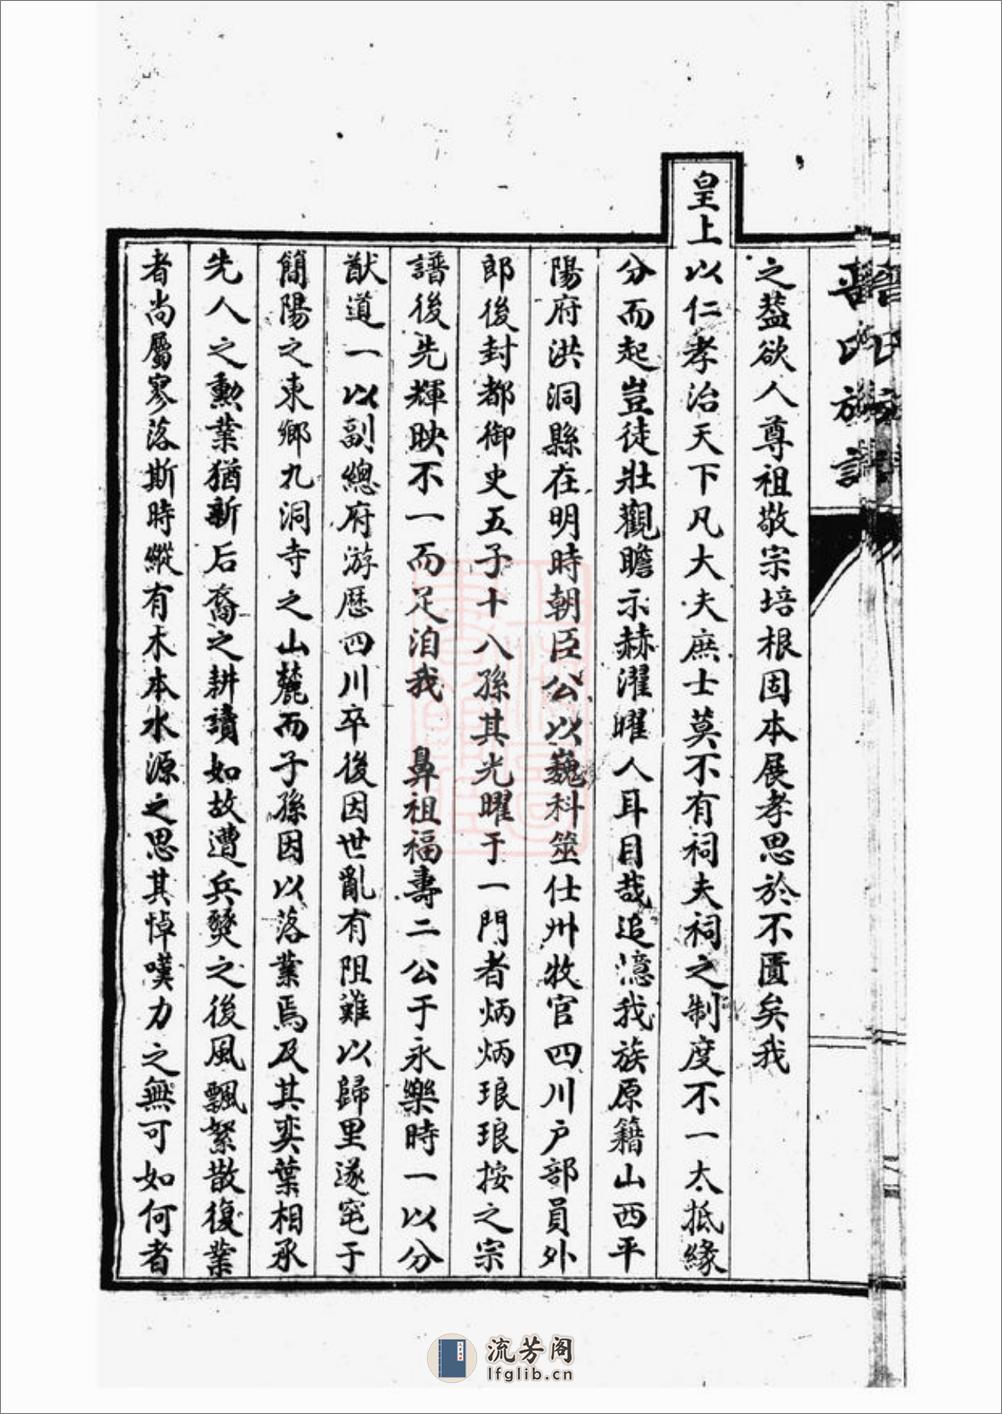 氏族譜
之葢欲人尊祖敬宗培根固本展孝思於不匱矣我
皇上以仁孝治天下凡大夫庶士莫不有祠夫祠之制度不一太抵緣
分而起豈徒壯觀瞻示赫濯曜人耳目哉追憶我族原籍山西平
陽府洪洞縣在明時朝臣公以巍科筮仕州牧官四川户部員外
郎後封都御史五子十八孫其光曜于一門者炳炳琅琅按之宗
譜後先輝映不一而足洎我 鼻祖福壽二公于永樂時一以分
猷道一以副總府游歷四川卒後因世亂有阻難以歸里遂窀于
簡陽之東鄉九洞寺之山麓而子孫因以落業焉及其奕葉相承
先人之勲業猶新后裔之耕讀如故遭兵燹之後風飄絮散復業
者尚屬寥落斯時縱有木本水源之思其悼嘆力之無可如何者
流芳阁
lfglib.cn